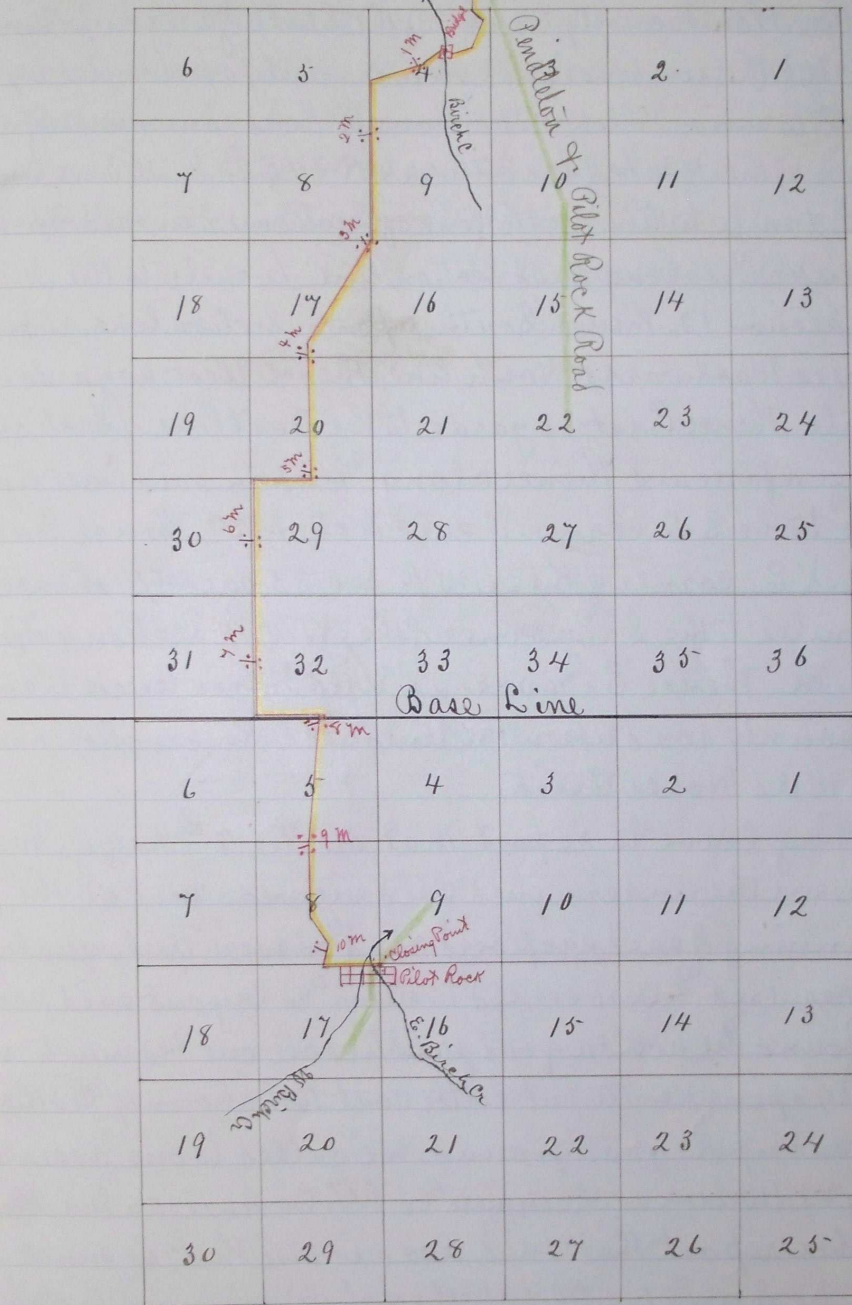 Bridge
1 M
6 5 4 3 2 1
Birch C
Pendleton & Pilot Rock Road
2 M
7 8 9 10 11 12
3 M
18 17 16 15 14 13
4 M
19 20 21 22 23 24
5 M
6 M
30 29 28 27 26 25
7 M
31 32 33 34 35 36
Base Line
8 M
6 5 4 3 2 1
9 M
7 8 9 10 11 12
10 M
Closing Point
Pilot Rock
18 17 16 15 14 13
E. Birch Cr
W Birch Cr
19 20 21 22 23 24
30 29 28 27 26 25